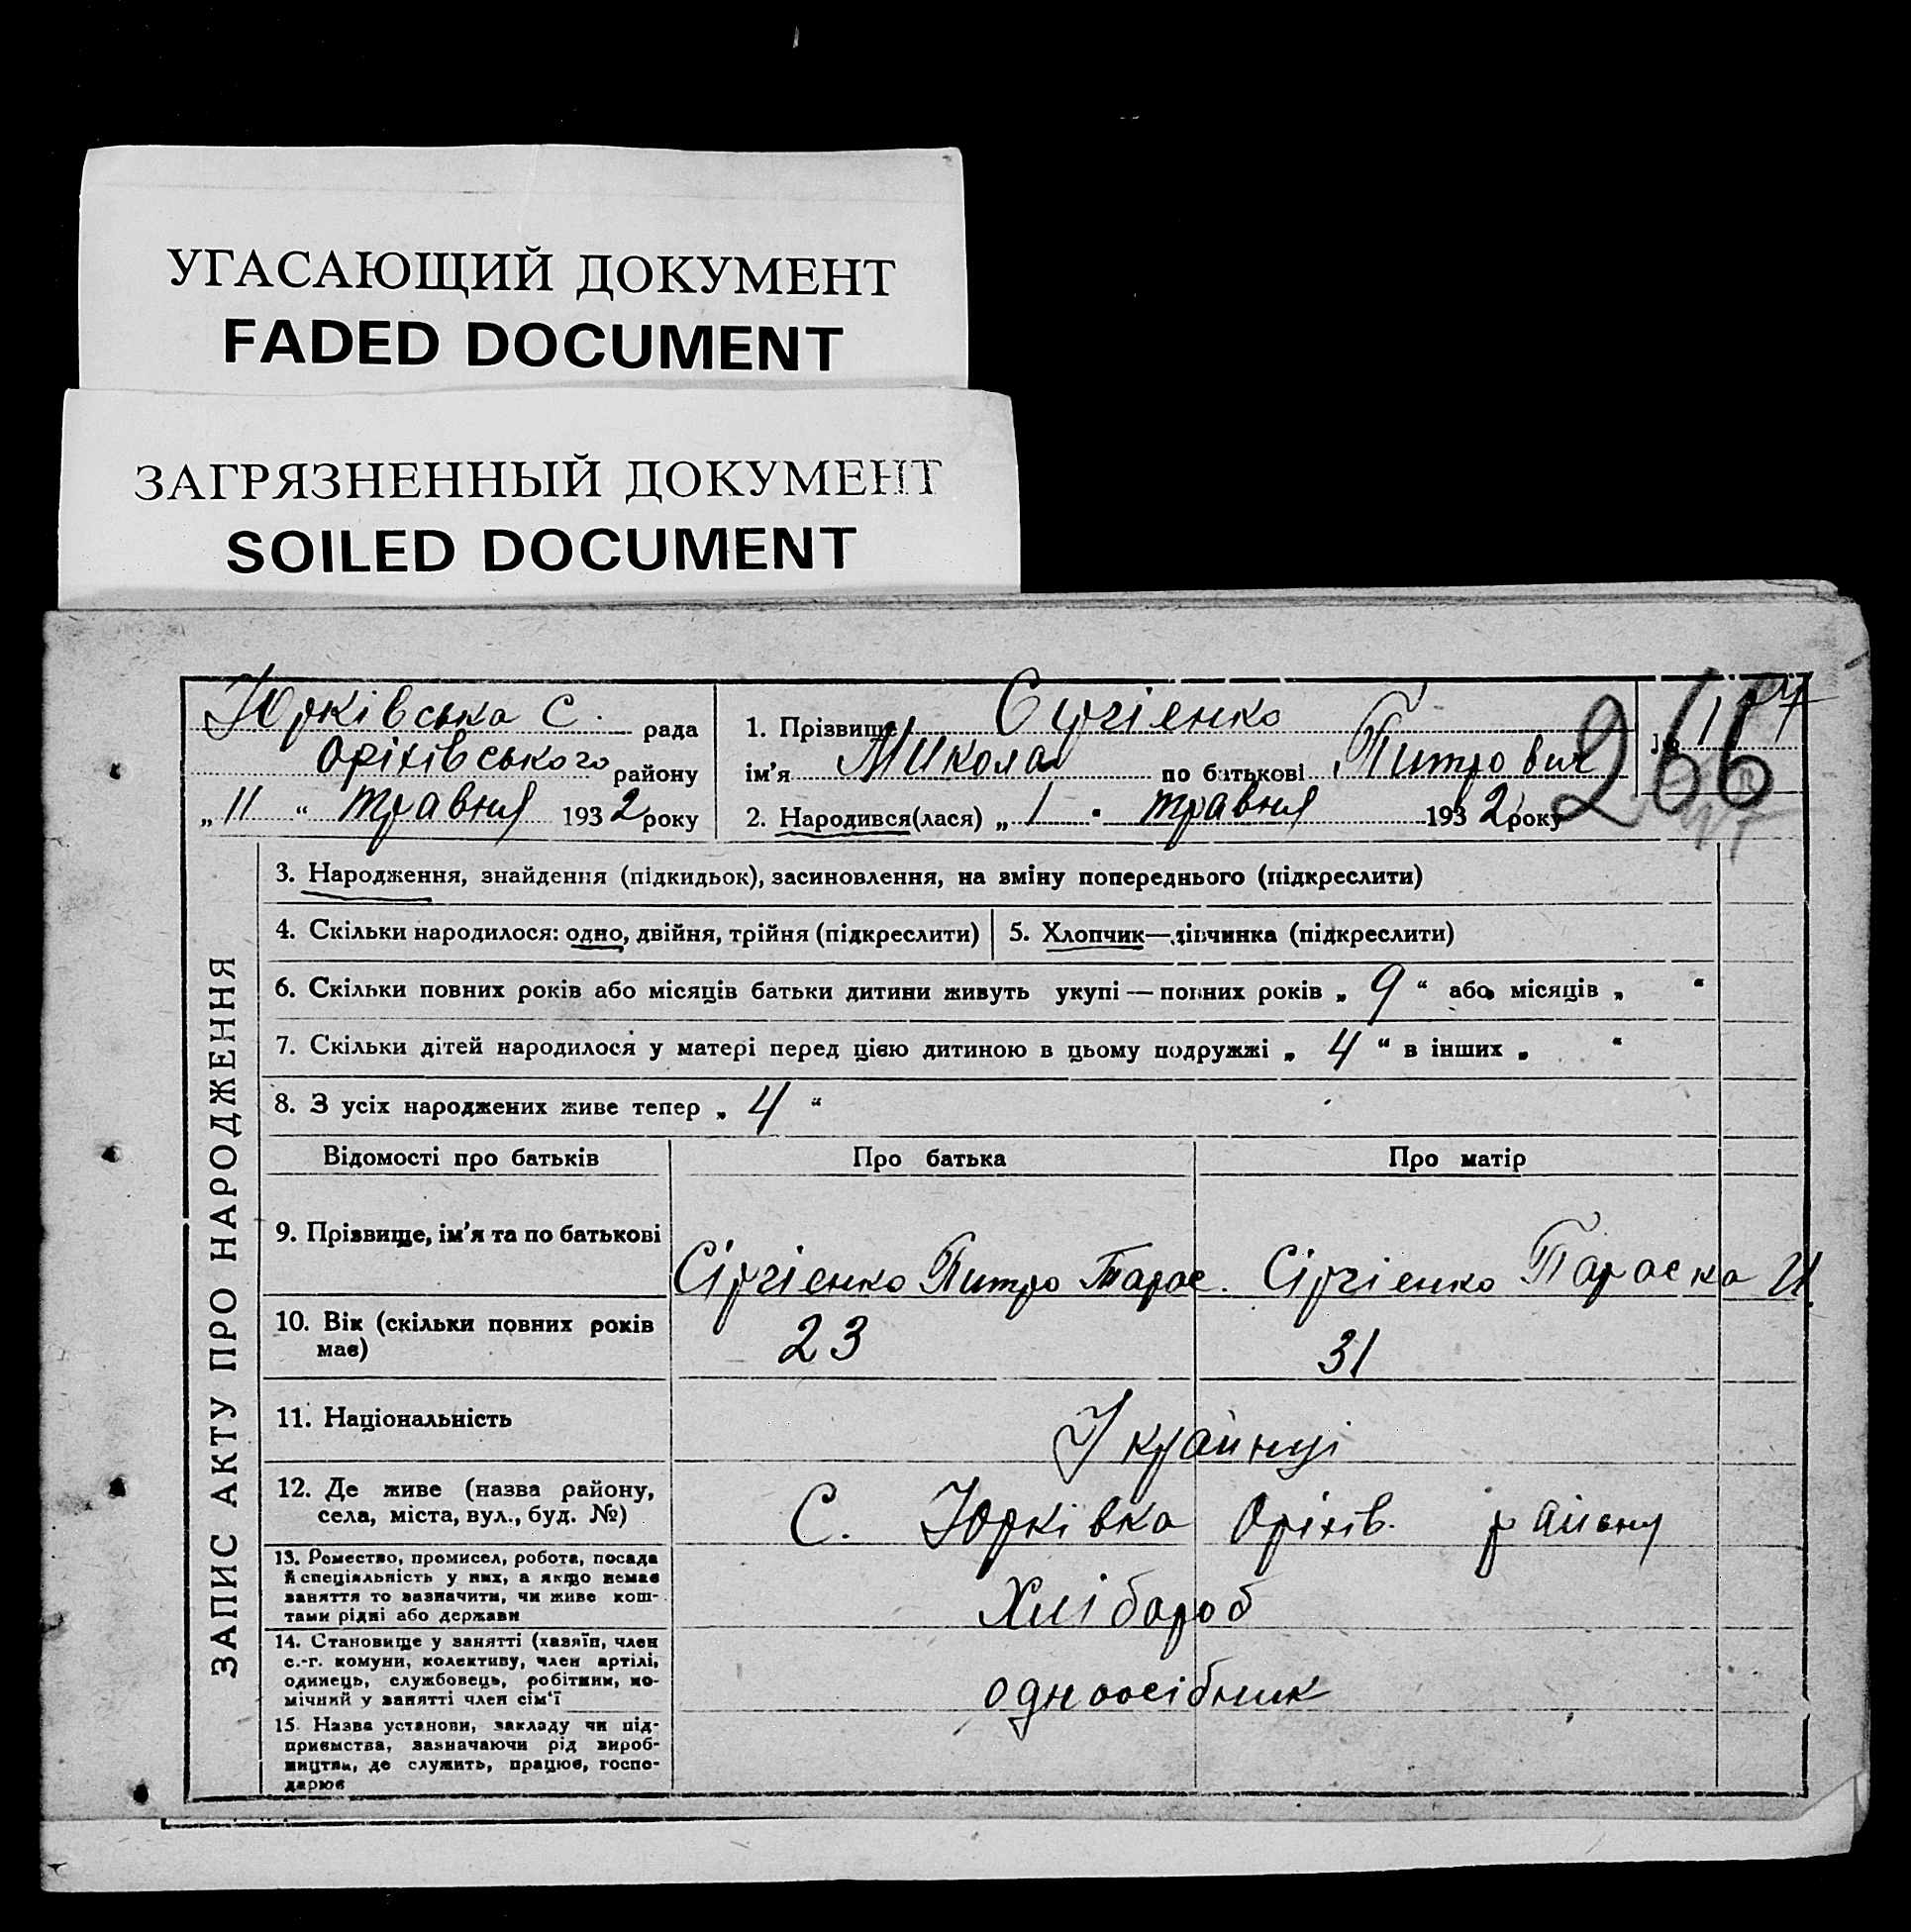 УГАСАЮЩИЙ ДОКУМЕНТ
FADED DOCUMENT
ЗАГРЯЗНЕННЫЙ ДОКУМЕНТ
SOILED DOCUMENT
Юрківська С. рада
Оріхівського району
„ 11 “ травня 1932 року
1. Прізвище Сіргієнко
ім'я Микола по батькові Питрович
2. Народився(лася) „ 1 " травня 1932 року
№
266
ЗАПИС АКТУ ПРО НАРОДЖЕННЯ
3. Народження, знайдення (підкидьок), засиновлення, на зміну попереднього (підкреслити)
4. Скільки народилося: одно, двійня, трійня (підкреслити)
5. Хлопчик—дівчинка (підкреслити)
6. Скільки повних років або місяців батьки дитини живуть укупі — повних років „ 9 “ або місяців „ “
7. Скільки дітей народилося у матері перед цією дитиною в цьому подружжі „ 4 “ в інших „ “
8. З усіх народжених живе тепер „ 4 “
Відомості про батьків Про батька Про матір
9. Прізвище, ім'я та по батькові
Сіргієнко Питро Тарас. Сіргієнко Параска И.
10. Вік (скільки повних років
має)
23 31
11. Національність
Українці
12. Де живе (назва району,
села, міста, вул., буд. №)
С. Юрківка Оріхів. району
13. Ремество, промисел, робота, посада
й спеціяльність у них, а якщо немає
заняття то зазначити, чи живе кош-
тами рідні або держави
Хлібороб
14. Становище у занятті (хазяїн, член
с.-г. комуни, колективу, член артілі,
одинець, службовець, робітник, по-
мічний у занятті член сім'ї
одноосібник
15. Назва установи, закладу чи під-
приємства, зазначаючи рід вироб-
ництва, де служить, працює, госпо-
дарює